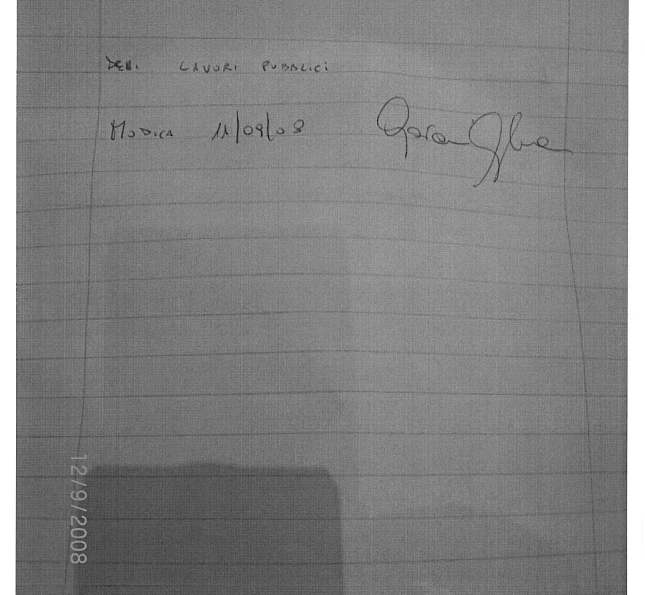 DEI. LAVORI PUBBLICI
MODICA 11/09/08
12/9/2008